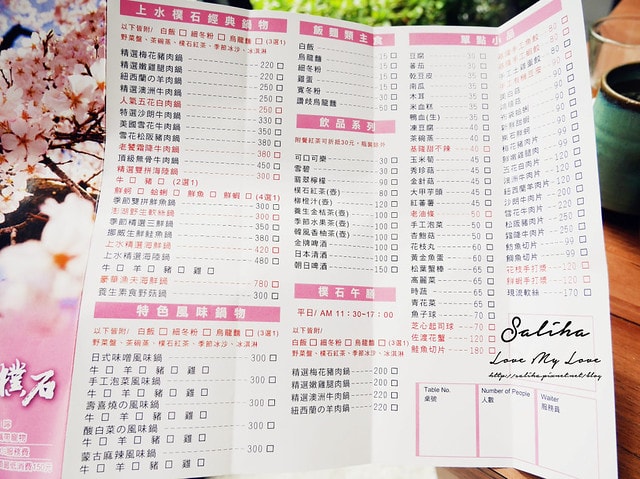 上水樸石經典鍋物
以下皆附/ 白飯 細冬粉 烏龍麵 (3選1)
野菜盤、茶碗蒸、樸石紅茶、季節冰沙、冰淇淋
精選梅花豬肉鍋 220
精選嫩雞腿肉鍋 220
紐西蘭の羊肉鍋 250
精選澳洲牛肉鍋 250
人氣五花白肉鍋 250
特選沙朗牛肉鍋 330
美國雪花牛肉鍋 350
雪花松阪豬肉鍋 380
老饕霜降牛肉鍋 380
頂級無骨牛肉鍋 450
精選雙拼海陸鍋 350
牛 豬 (2選1)
鮮蚵 蛤蜊 鮮魚 鮮蝦 (4選1)
季節雙拼鮮魚鍋 300
澎湖野生軟絲鍋 300
季節精選三鮮鍋 350
挪威生鮮鮭魚鍋 380
上水精選海鮮鍋 420
上水精選海陸鍋 480
牛 羊 豬 雞
豪華漁夫海鮮鍋 780
養生素食野菇鍋 300
特色風味鍋物
以下皆附/ 白飯 細冬粉 烏龍麵 (3選1)
野菜盤、茶碗蒸、樸石紅茶、季節冰沙、冰淇淋
日式味噌風味鍋 300
牛 羊 豬 雞
手工泡菜風味鍋 300
牛 羊 豬 雞
壽喜燒の風味鍋 300
牛 羊 豬 雞
酸白菜の風味鍋 300
牛 羊 豬 雞
蒙古麻辣風味鍋 300
牛 羊 豬 雞
飯麵類主食
白飯 15
烏龍麵 15
細冬粉 15
雞蛋 15
寬冬粉 30
讚岐烏龍麵 50
飲品系列
附餐紅茶可折抵30元，瓶裝除外
可口可樂 30
雪碧 30
翡翠檸檬 90
樸石紅茶(壺) 80
柳橙汁(壺) 120
養生金桔茶(壺) 150
季節水果茶(壺) 150
韓風香柚茶(壺) 150
金牌啤酒 100
日本清酒 100
朝日啤酒 150
樸石午膳
平日/ AM 11：30-17：00
以下皆附/ 白飯 細冬粉 烏龍麵 (3選1)
野菜盤、樸石紅茶、季節冰沙、冰淇淋
精選梅花豬肉鍋 200
精選嫩雞腿肉鍋 200
精選澳洲牛肉鍋 220
紐西蘭の羊肉鍋 220
單點小品
豆腐 30
番茄 30
乾豆皮 30
南瓜 30
木耳 30
米血糕 30
鴨血(生) 30
凍豆腐 40
茶碗蒸 40
基隆甜不辣 40
玉米筍 45
秀珍菇 45
金針菇 45
大甲芋頭 45
紅薯薯 45
老油條 50
手工泡菜 50
杏鮑菇 50
花枝丸 50
黃金魚蛋 60
松葉蟹棒 60
高麗菜 65
時蔬 65
青花菜 65
魚子球 70
芝心起司球 70
佐渡花蟹 120
鮭魚切片 180
五花白肉片
澳洲牛肉片 120
紐西蘭羊肉片 120
沙朗牛肉片
雪花牛肉片
松阪豬肉片
霜降牛肉片
鮭魚切片 99
鯛魚切片 99
花枝手打漿 120
鮮蝦手打漿 120
現流軟絲 170
Saliha
Love My Love
http://saliha.pixnet.net/blog
Table No. 桌號
Number of People 人數
Waiter 服務員
樸石